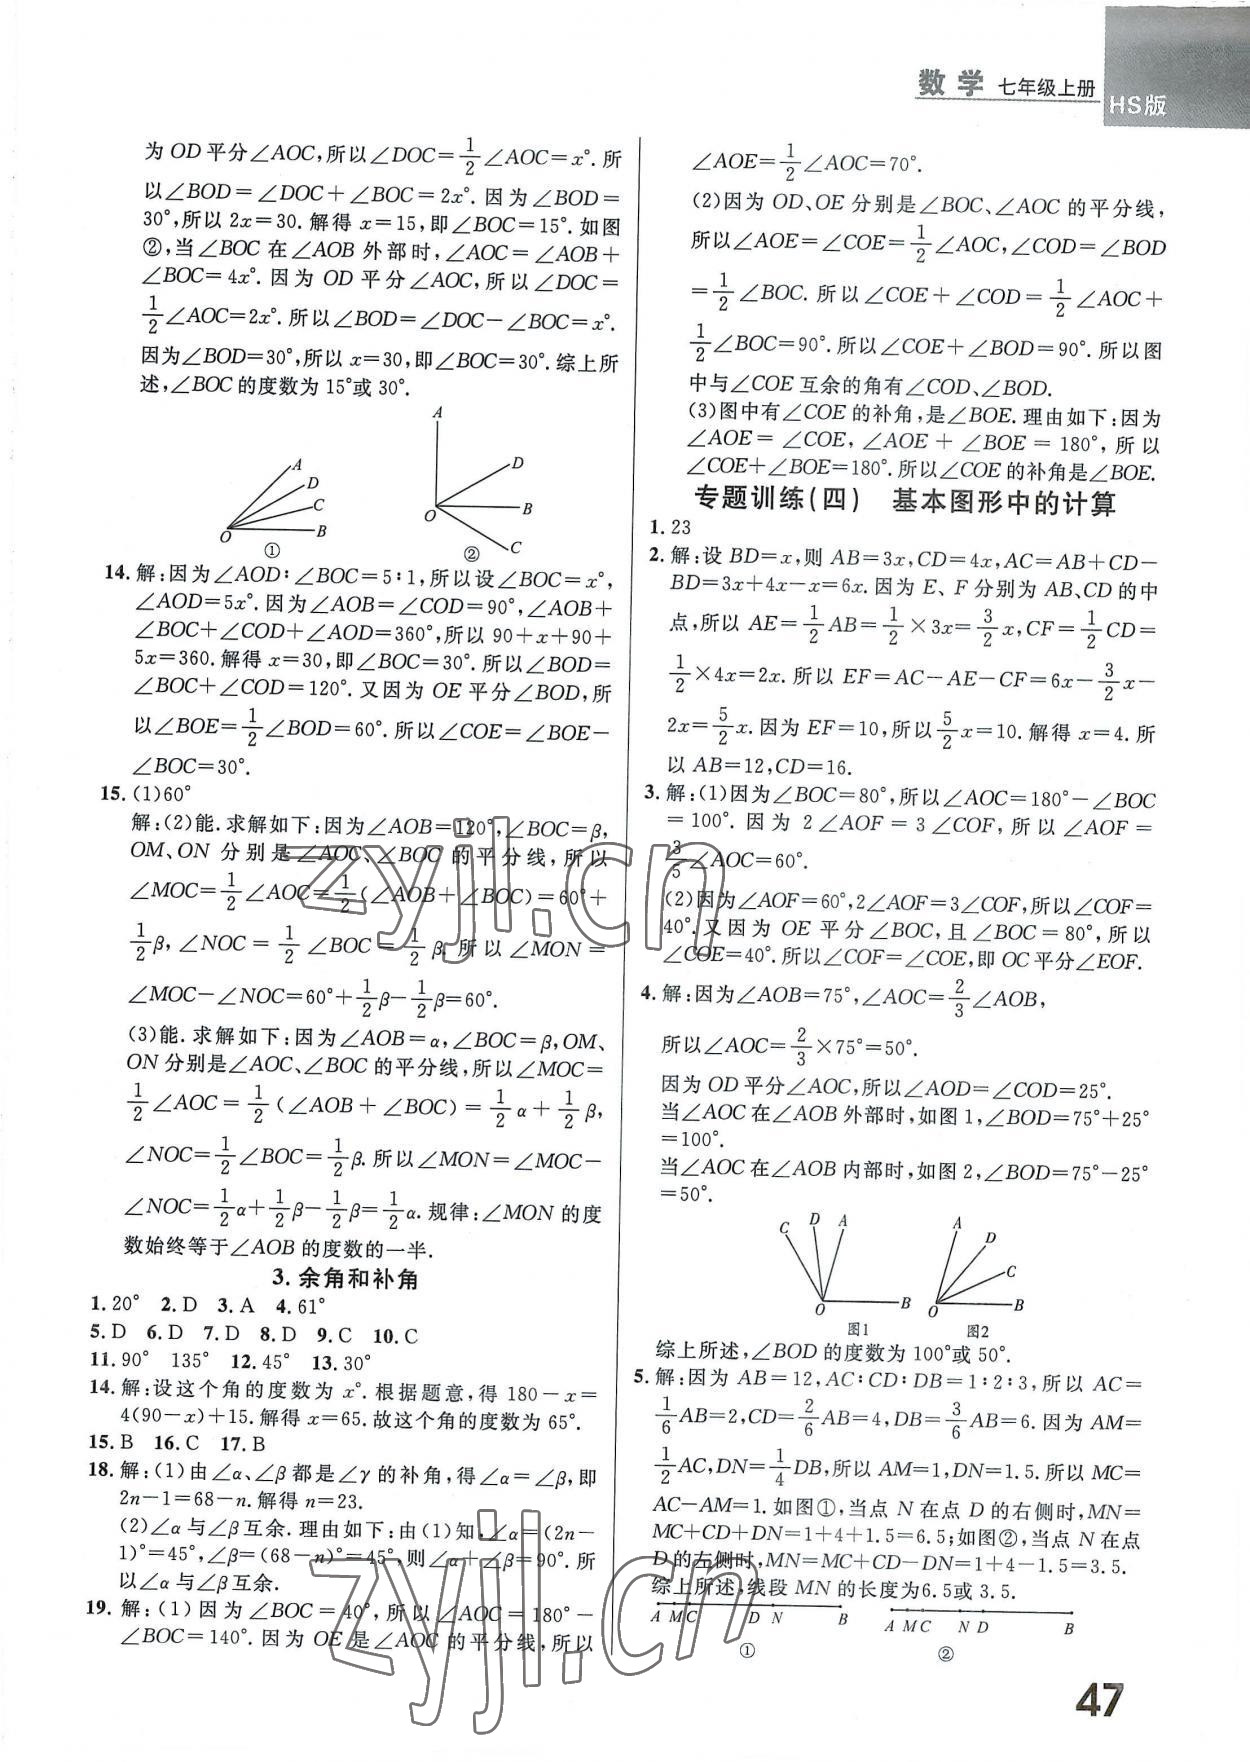 数学 七年级上册
HS版
为OD平分∠AOC,所以∠DOC=$\frac{1}{2}$∠AOC=x°.所
以∠BOD=∠DOC+∠BOC=2x°.因为∠BOD=
30°,所以2x=30.解得x=15,即∠BOC=15°.如图
②,当∠BOC在∠AOB外部时,∠AOC=∠AOB+
∠BOC=4x°.因为OD平分∠AOC,所以∠DOC=
$\frac{1}{2}$∠AOC=2x°.所以∠BOD=∠DOC-∠BOC=x°.
因为∠BOD=30°,所以x=30,即∠BOC=30°.综上所
述,∠BOC的度数为15°或30°.
A
D
C
O
B
①
A
D
B
O
C
②
14.解:因为∠AOD∶∠BOC=5∶1,所以设∠BOC=x°,
∠AOD=5x°.因为∠AOB=∠COD=90°,∠AOB+
∠BOC+∠COD+∠AOD=360°,所以90+x+90+
5x=360.解得x=30,即∠BOC=30°.所以∠BOD=
∠BOC+∠COD=120°.又因为OE平分∠BOD,所
以∠BOE=$\frac{1}{2}$∠BOD=60°.所以∠COE=∠BOE-
∠BOC=30°.
15.(1)60°
解:(2)能.求解如下:因为∠AOB=120°,∠BOC=β,
OM、ON分别是∠AOC、∠BOC的平分线,所以
∠MOC=$\frac{1}{2}$∠AOC=$\frac{1}{2}$(∠AOB+∠BOC)=60°+
$\frac{1}{2}$β,∠NOC=$\frac{1}{2}$∠BOC=$\frac{1}{2}$β.所以∠MON=
∠MOC-∠NOC=60°+$\frac{1}{2}$β-$\frac{1}{2}$β=60°.
(3)能.求解如下:因为∠AOB=α,∠BOC=β,OM、
ON分别是∠AOC、∠BOC的平分线,所以∠MOC=
$\frac{1}{2}$∠AOC=$\frac{1}{2}$(∠AOB+∠BOC)=$\frac{1}{2}$α+$\frac{1}{2}$β,
∠NOC=$\frac{1}{2}$∠BOC=$\frac{1}{2}$β.所以∠MON=∠MOC-
∠NOC=$\frac{1}{2}$α+$\frac{1}{2}$β-$\frac{1}{2}$β=$\frac{1}{2}$α.规律:∠MON的度
数始终等于∠AOB的度数的一半.
3.余角和补角
1.20° 2.D 3.A 4.61°
5.D 6.D 7.D 8.D 9.C 10.C
11.90° 135° 12.45° 13.30°
14.解:设这个角的度数为x°.根据题意,得180-x=
4(90-x)+15.解得x=65.故这个角的度数为65°.
15.B 16.C 17.B
18.解:(1)由∠α、∠β都是∠γ的补角,得∠α=∠β,即
2n-1=68-n.解得n=23.
(2)∠α与∠β互余.理由如下:由(1)知,∠α=(2n-
1)°=45°,∠β=(68-n)°=45°,则∠α+∠β=90°.所
以∠α与∠β互余.
19.解:(1)因为∠BOC=40°,所以∠AOC=180°-
∠BOC=140°.因为OE是∠AOC的平分线,所以
∠AOE=$\frac{1}{2}$∠AOC=70°.
(2)因为OD、OE分别是∠BOC、∠AOC的平分线,
所以∠AOE=∠COE=$\frac{1}{2}$∠AOC,∠COD=∠BOD
=$\frac{1}{2}$∠BOC.所以∠COE+∠COD=$\frac{1}{2}$∠AOC+
$\frac{1}{2}$∠BOC=90°.所以∠COE+∠BOD=90°.所以图
中与∠COE互余的角有∠COD、∠BOD.
(3)图中有∠COE的补角,是∠BOE.理由如下:因为
∠AOE=∠COE,∠AOE+∠BOE=180°,所以
∠COE+∠BOE=180°.所以∠COE的补角是∠BOE.
专题训练(四) 基本图形中的计算
1.23
2.解:设BD=x,则AB=3x,CD=4x,AC=AB+CD-
BD=3x+4x-x=6x.因为E、F分别为AB、CD的中
点,所以AE=$\frac{1}{2}$AB=$\frac{1}{2}$×3x=$\frac{3}{2}$x,CF=$\frac{1}{2}$CD=
$\frac{1}{2}$×4x=2x.所以EF=AC-AE-CF=6x-$\frac{3}{2}$x-
2x=$\frac{5}{2}$x.因为EF=10,所以$\frac{5}{2}$x=10.解得x=4.所
以AB=12,CD=16.
3.解:(1)因为∠BOC=80°,所以∠AOC=180°-∠BOC
=100°.因为2∠AOF=3∠COF,所以∠AOF=
$\frac{3}{5}$∠AOC=60°.
(2)因为∠AOF=60°,2∠AOF=3∠COF,所以∠COF=
40°.又因为OE平分∠BOC,且∠BOC=80°,所以
∠COE=40°.所以∠COF=∠COE,即OC平分∠EOF.
4.解:因为∠AOB=75°,∠AOC=$\frac{2}{3}$∠AOB,
所以∠AOC=$\frac{2}{3}$×75°=50°.
因为OD平分∠AOC,所以∠AOD=∠COD=25°.
当∠AOC在∠AOB外部时,如图1,∠BOD=75°+25°
=100°.
当∠AOC在∠AOB内部时,如图2,∠BOD=75°-25°
=50°.
C
D
A
O
B
图1
A
D
C
O
B
图2
综上所述,∠BOD的度数为100°或50°.
5.解:因为AB=12,AC∶CD∶DB=1∶2∶3,所以AC=
$\frac{1}{6}$AB=2,CD=$\frac{2}{6}$AB=4,DB=$\frac{3}{6}$AB=6.因为AM=
$\frac{1}{2}$AC,DN=$\frac{1}{4}$DB,所以AM=1,DN=1.5.所以MC=
AC-AM=1.如图①,当点N在点D的右侧时,MN=
MC+CD+DN=1+4+1.5=6.5;如图②,当点N在点
D的左侧时,MN=MC+CD-DN=1+4-1.5=3.5.
综上所述,线段MN的长度为6.5或3.5.
A M C D N B
①
A M C N D B
②
47
zyjl.cn
zyjl.cn